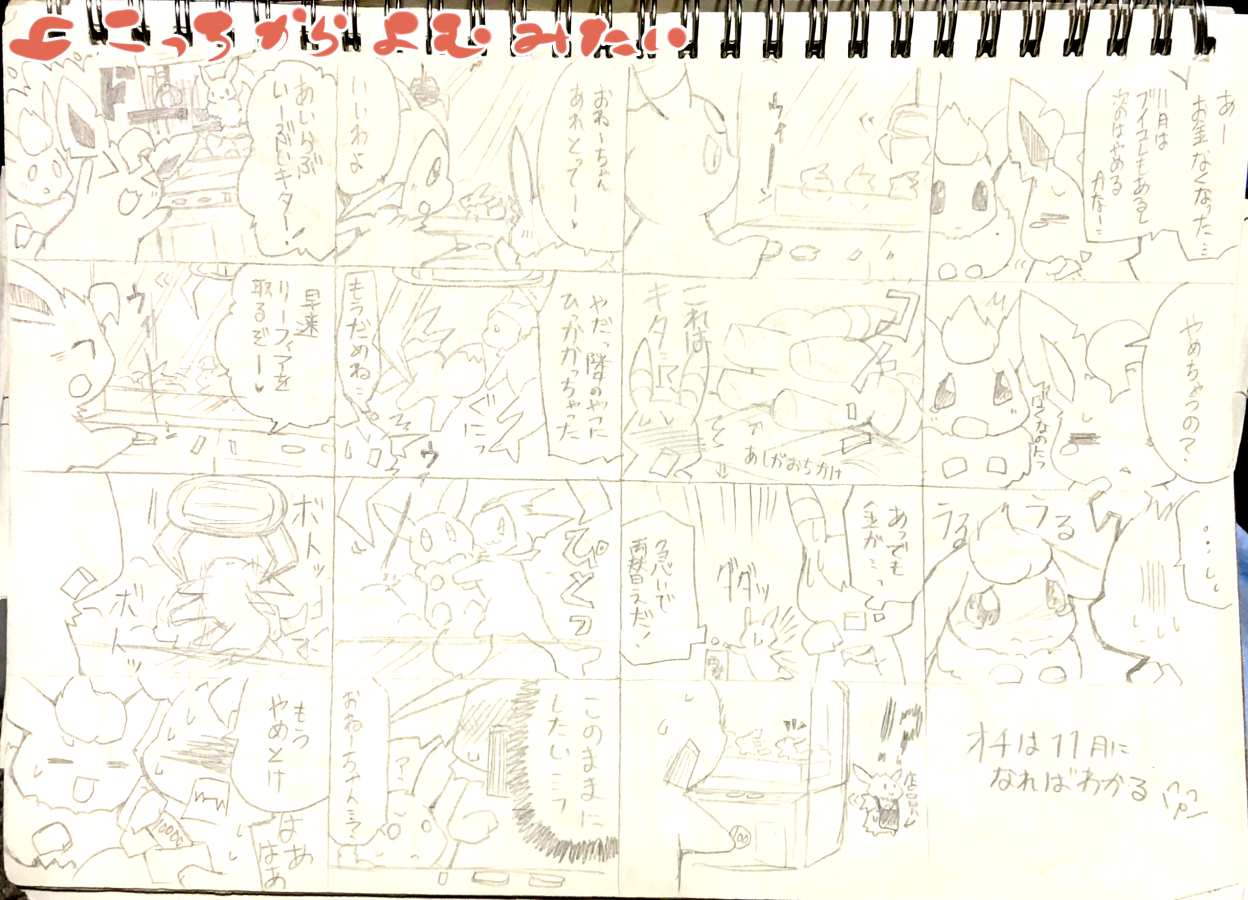 こっちからよむみたい
あいらぶ
いーぶいキター!
早速
リーフィアを
取るぞー♥
ウィ
ボトッ
ボトッ
もう
やめとけ
はぁ
はぁ
おねーちゃん
あれとってー♥
いいわよ
やだっ隣のやつに
ひっかかっちゃった
もうだめね…
ウィ
ぴとっ
このままに
したい…っ
おねーちゃん…?
ウィーン
コトン
これは
キタ
あしがおちかけ
あっでも
金が…っ
グダッ
急いで
両替えだ!
100
あー
お金なくなった…
11月は
ブイコレもあるし
次のはやめる
かなー…
やめちゃうの?
ぼくなのたっ
うる
うる
オチは11月に
なればわかる